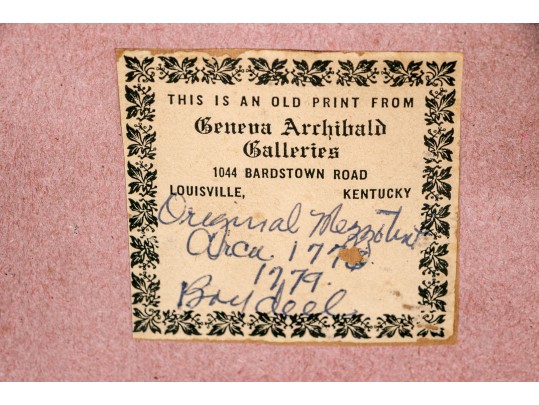 THIS IS AN OLD PRINT FROM
Geneva Archibald
Galleries
1044 BARDSTOWN ROAD
LOUISVILLE, KENTUCKY
Original Mezzotint
Circa 1778
1779
Boydell